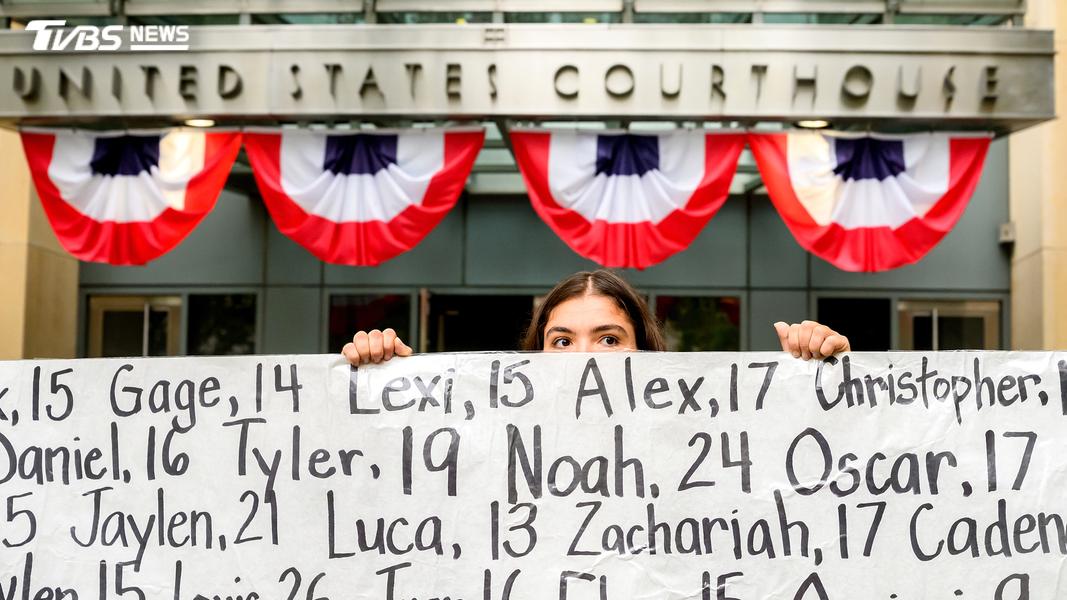 TVBS NEWS
UNITED STATES COURTHOUSE
15 Gage, 14 Lexi, 15 Alex, 17 Christopher,
Daniel, 16 Tyler, 19 Noah, 24 Oscar, 17
5 Jaylen, 21 Luca, 13 Zachariah, 17 Caden
15